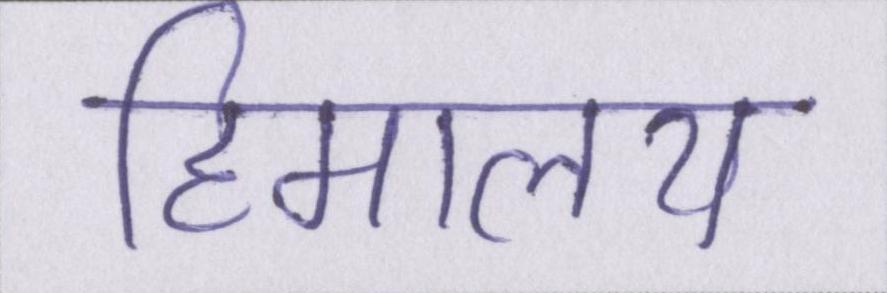 हिमालय